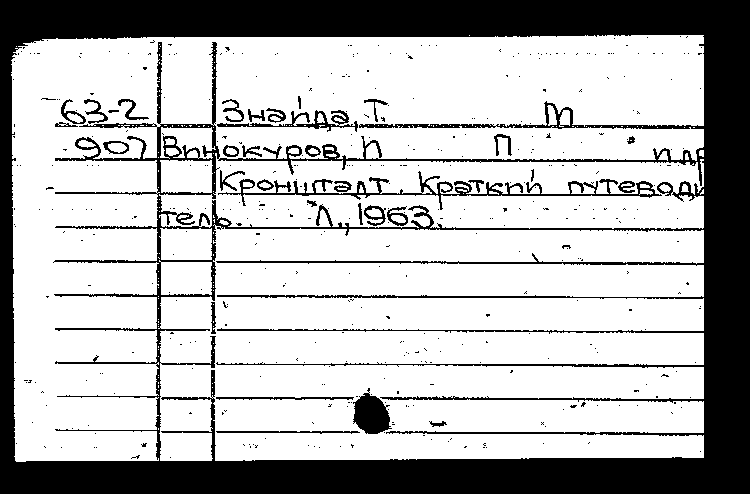 63-2 Знайда, Т. М
907 Винокуров, П П и др
Кронштадт. Краткий путеводи
тель. Л., 1963.